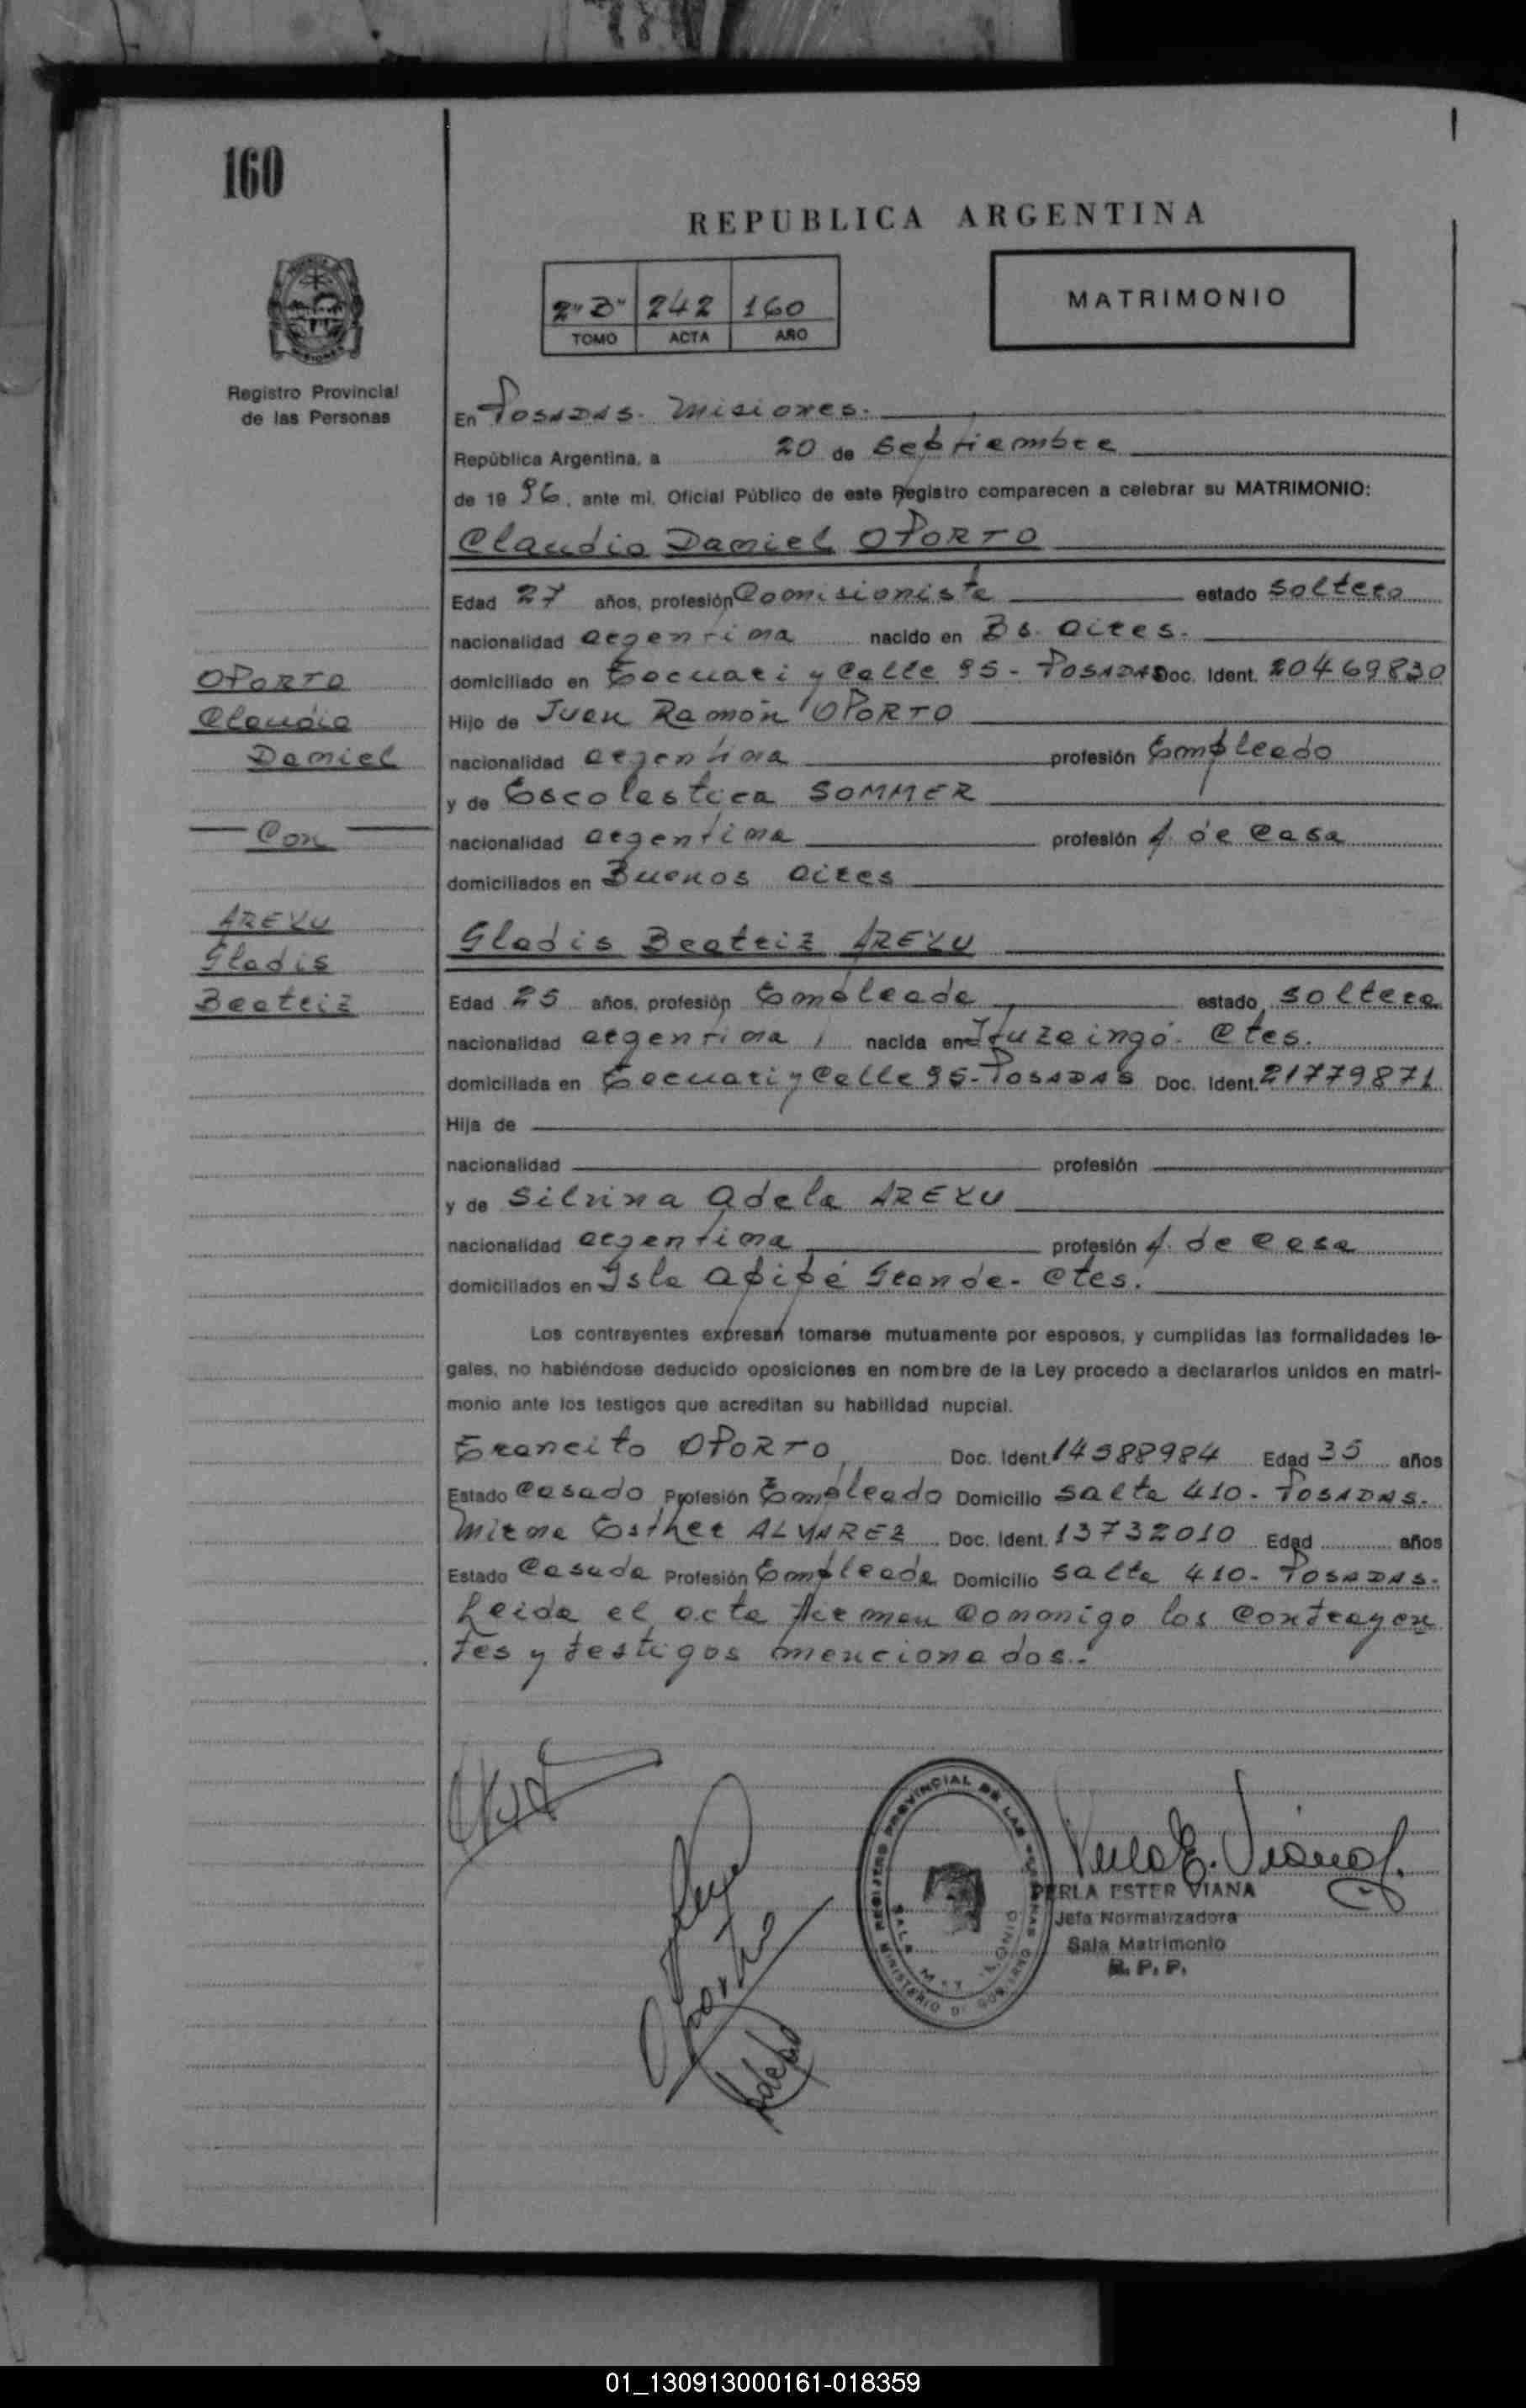 160
REPUBLICA ARGENTINA
2"B" 242 160
TOMO ACTA AÑO
MATRIMONIO
Registro Provincial
de las Personas
En Posadas. Misiones.
República Argentina, a 20 de Septiembre
de 19 96, ante mi, Oficial Público de este Registro comparecen a celebrar su MATRIMONIO:
Claudio Daniel OPORTO
Edad 27 años, profesión Comisionista estado soltero
nacionalidad argentina nacido en Bs. Aires.
domiciliado en Tocuari y Calle 95 - POSADAS Doc. Ident. 20469830
Hijo de Juan Ramón OPORTO
nacionalidad argentina profesión Empleado
y de Escolastica SOMMER
nacionalidad argentina profesión A. de Casa
domiciliados en Buenos Aires
OPORTO
Claudio
Daniel
Con
AREYU
Gladis
Beatriz
Gladis Beatriz AREYU
Edad 25 años, profesión Empleada estado soltera
nacionalidad argentina nacida en Ituzaingó. Ctes.
domiciliada en Tocuari y Calle 95 - POSADAS Doc. Ident. 21779871
Hija de
nacionalidad profesión
y de Silvina Adela AREYU
nacionalidad argentina profesión A. de Casa
domiciliados en Isla Apipé Grande - Ctes.
Los contrayentes expresan tomarse mutuamente por esposos, y cumplidas las formalidades le-
gales, no habiéndose deducido oposiciones en nombre de la Ley procedo a declararlos unidos en matri-
monio ante los testigos que acreditan su habilidad nupcial.
OPORTO Doc. Ident. 14588984 Edad 35 años
Estado Casado Profesión Empleado Domicilio Salta 410 - POSADAS.
Mirna Esther ALVAREZ Doc. Ident. 13732010 Edad años
Estado Casada Profesión Empleada Domicilio Salta 410 - POSADAS.
Leida el acta firman conmigo los contrayen
tes y testigos mencionados.-
Perla E. Viana
PERLA ESTER VIANA
Jefa Normalizadora
Sala Matrimonio
R. P. P.
REGISTRO PROVINCIAL DE LAS PERSONAS
MINISTERIO DE GOBIERNO
01_130913000161-018359